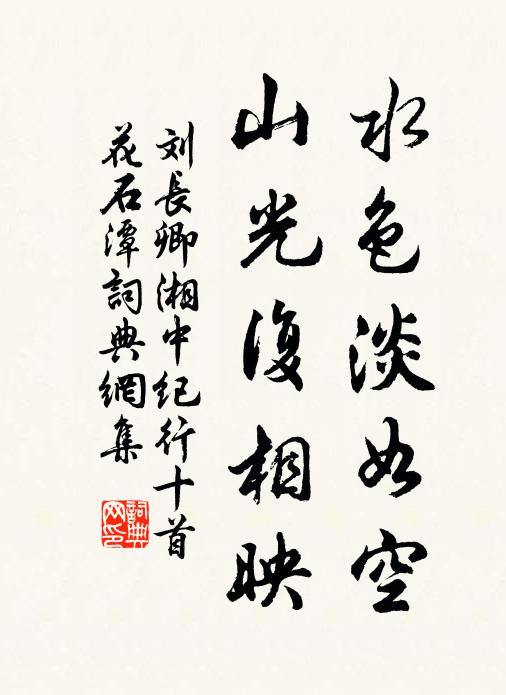 水色淡如空
山光復相映
刘長卿湘中纪行十首
花石潭詞典網集
詞典
网印